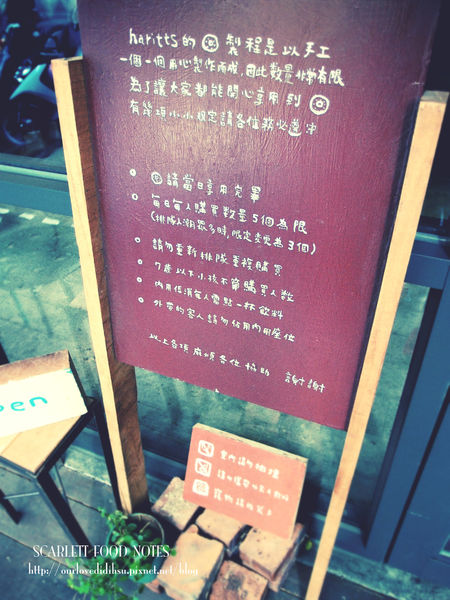 haritts的 製程是以手工
一個一個用心製作而成,因此數量非常有限
為了讓大家都能開心享用到
有幾項小小規定請各位務必遵守
請當日享用完畢
每日每人購買數量5個為限
(排隊人潮眾多時,限定變更為3個)
請勿重新排隊重複購買
7歲以下小孩不算購買人數
內用低消每人需點一杯飲料
外帶的客人請勿佔用內用座位
以上各項麻煩各位協助 謝謝
pen
室內請勿拍照
請勿攜帶外食及飲料
寵物請勿
SCARLETT FOOD NOTES
http://ourlovedidihsu.pixnet.net/blog